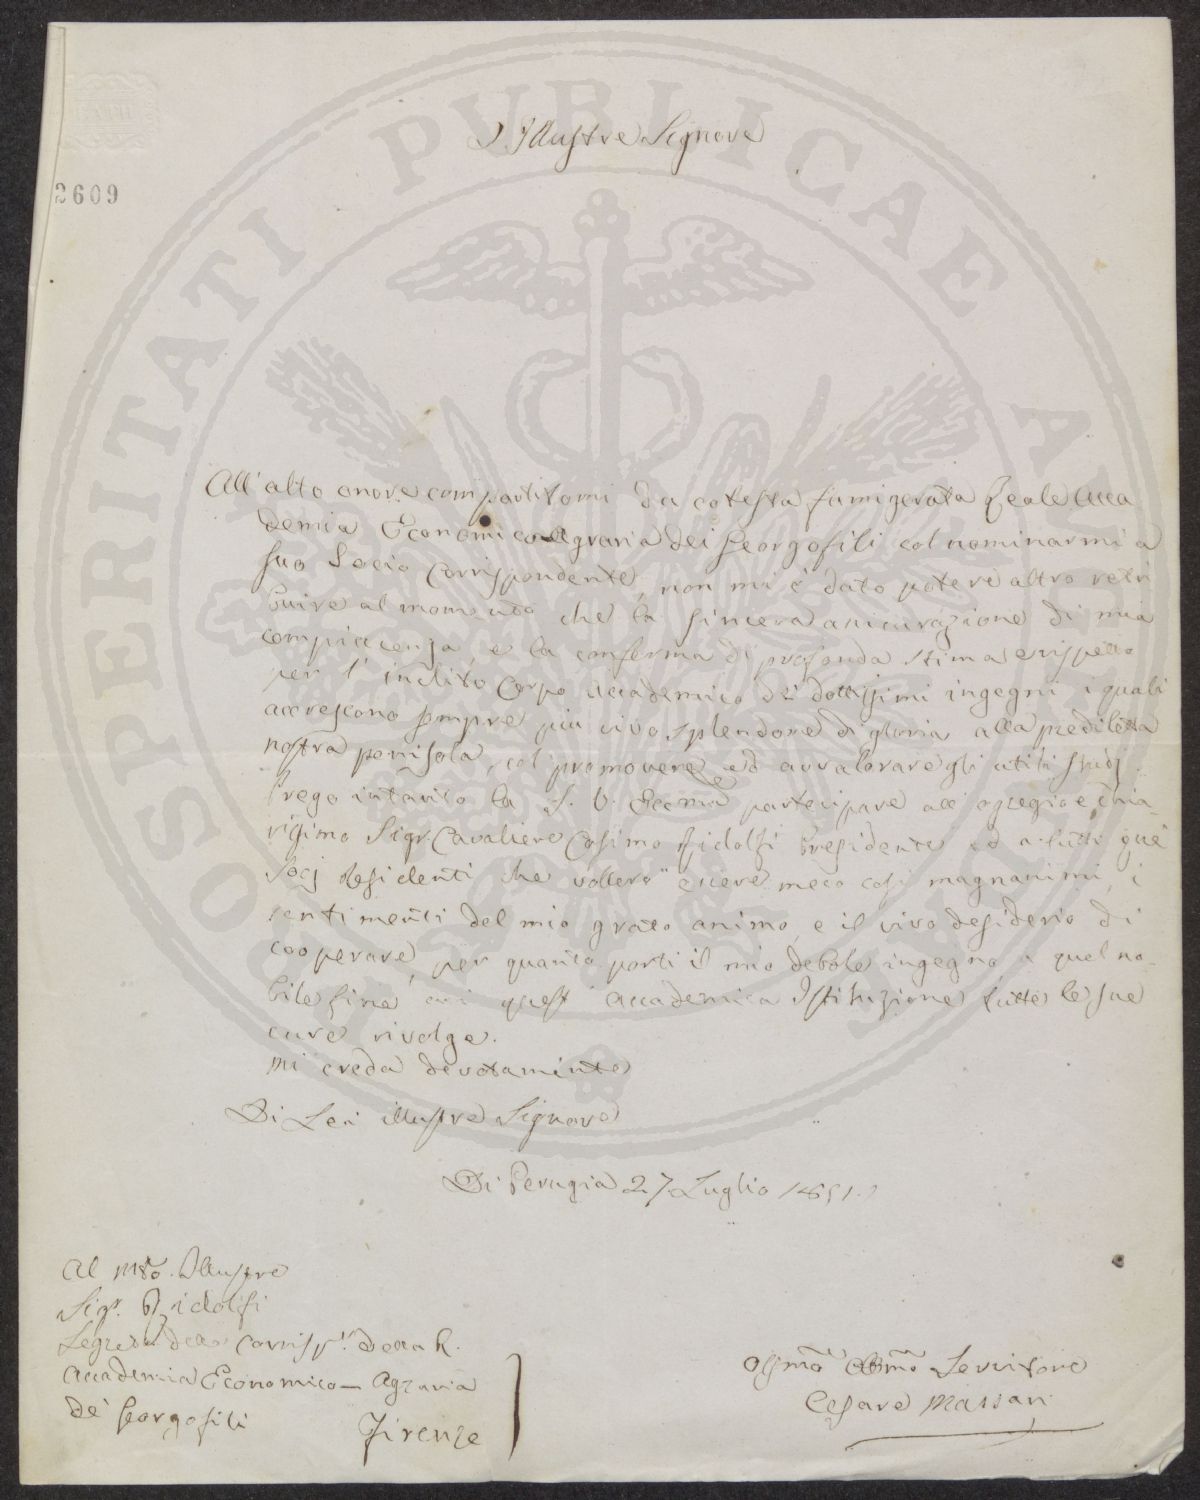 PROSPERITATI PUBLICAE AUGENDAE
Illustre Signore
2609
All'alto onore compartitomi da cotesta fumigerata Reale Acca
demia Economico Agraria dei Georgofili col nominarmi a
suo Socio Corrispondente, non mi è dato potere altro retri
buire al momento che la sincera assicurazione di mia
compiacenza, e la conferma di profonda stima e rispetto
per l'inclito Corpo Accademico de' dottissimi ingegni i quali
accrescono sempre più vivo splendore di gloria alla prediletta
nostra penisola, col promovere ed avvalorare gli utili studj.
Prego intanto la S. V. Eccma partecipare all'egregio e chia
rissimo Sigr Cavaliere Cosimo Ridolfi Presidente ed a tutti que'
Socj Residenti che vollero essere meco così magnanimi, i
sentimenti del mio grato animo, e il vivo desiderio di
cooperare, per quanto porti il mio debole ingegno, a quel no-
bile fine cui quest'Accademica Istituzione tutte le sue
cure rivolge.
Mi creda devotamente
Di Lei illustre Signore
Di Perugia 27 Luglio 1851.
Al Mto. Illustre
Sigr. Ridolfi
Segreto delle Corrispe. della R.
Accademia Economico-Agraria
de' Georgofili
Firenze
Obbmo Servitore
Cesare Massari